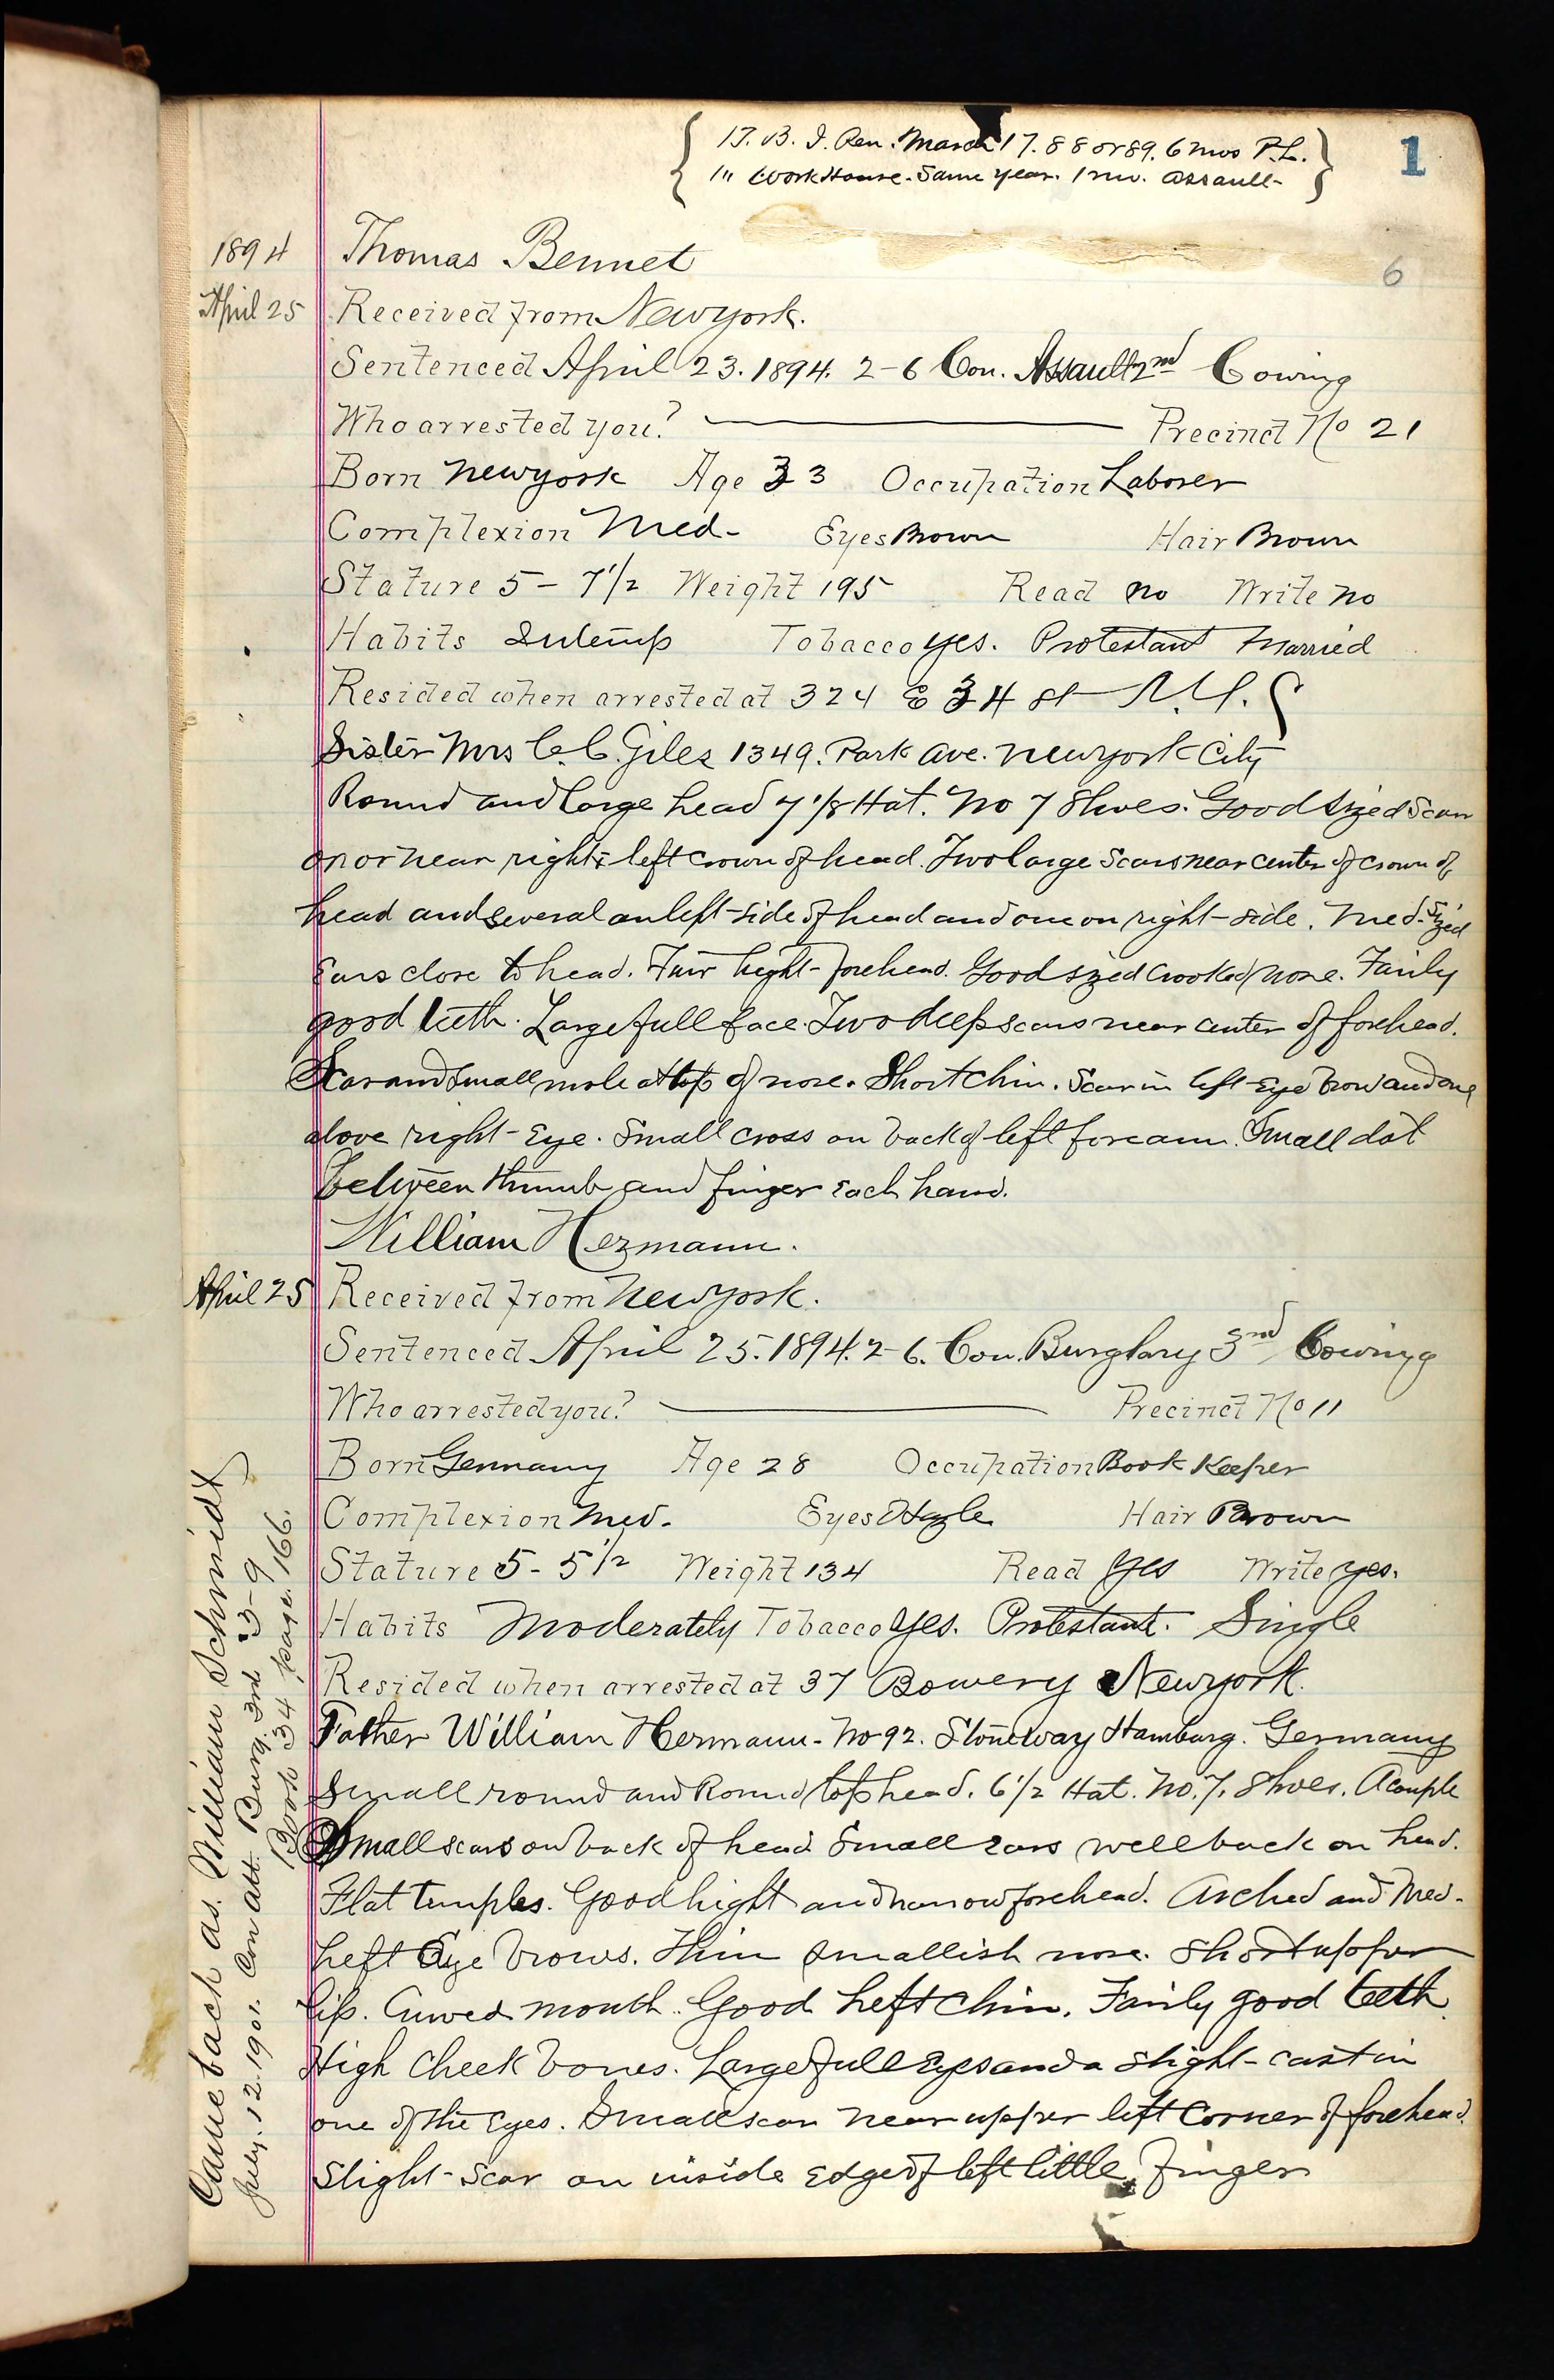 1 T. B. I. Pen. March 17. 88 or 89. 6 mos P.L.
1 " Work House. Same year. 1 mo. Assault-
1
6
1894 Thomas Bennet
April 25 Received from Newyork.
Sentenced April 23. 1894. 2-6 Con. Assault 2nd Cowing
Who arrested you? Precinct No 21
Born Newyork Age 33 Occupation Laborer
Complexion Med- Eyes Brown Hair Brown
Stature 5-7 1/2 Weight 195 Read no Write no
Habits Intemp Tobacco yes. Protestant Married
Resided when arrested at 324 E 34 st N.Y.
Sister Mrs C. C. Giles 1349. Park Ave. Newyork City
Round and large head 7 1/8 Hat. No 7 Shoes. Good sized scar
on or near right & left crown of head. Two large scars near center of crown of
head and several on left side of head and one on right-side. Med. sized
Ears close to head. Fair hight-forehead. Good sized crooked nose. Fairly
good teeth. Large full face. Two deep scars near center of forehead.
Scar and small mole at top of nose. Short chin. Scar in left-Eye brow and one
above right-Eye. Small cross on back of left forearm. Small dot
between thumb and finger Each hand.
William Hermann.
April 25 Received from Newyork.
Sentenced April 25. 1894. 2-6. Con. Burglary 3rd Cowing
Who arrested you? Precinct No 11
Born Germany Age 28 Occupation Book Keeper
Complexion Med. Eyes Hazle Hair Brown
Stature 5-5 1/2 Weight 134 Read yes Write yes.
Habits Moderately Tobacco yes. Protestant. Single
Resided when arrested at 37 Bowery Newyork.
Father William Hermann- No 92. Stoneway Hamburg. Germany
Small round and Round top head. 6 1/2 Hat. No. 7. Shoes. A couple
Small scars on back of head Small ears well back on head.
Flat temples. Good hight and narrow forehead. Arched and Med-
heft Eye brows. Thin smallish nose. Short upper
lip. Curved mouth. Good heft chin. Fairly good teeth.
High cheek bones. Large full Eyes and a slight-cast in
one of the Eyes. Small scar near upper left corner of forehead.
Slight-Scar on inside Edge of left little finger
Came back as. William Schmidt
July. 12. 1901. Con att. Burg. 3rd 3-9
Book 34 page. 166.